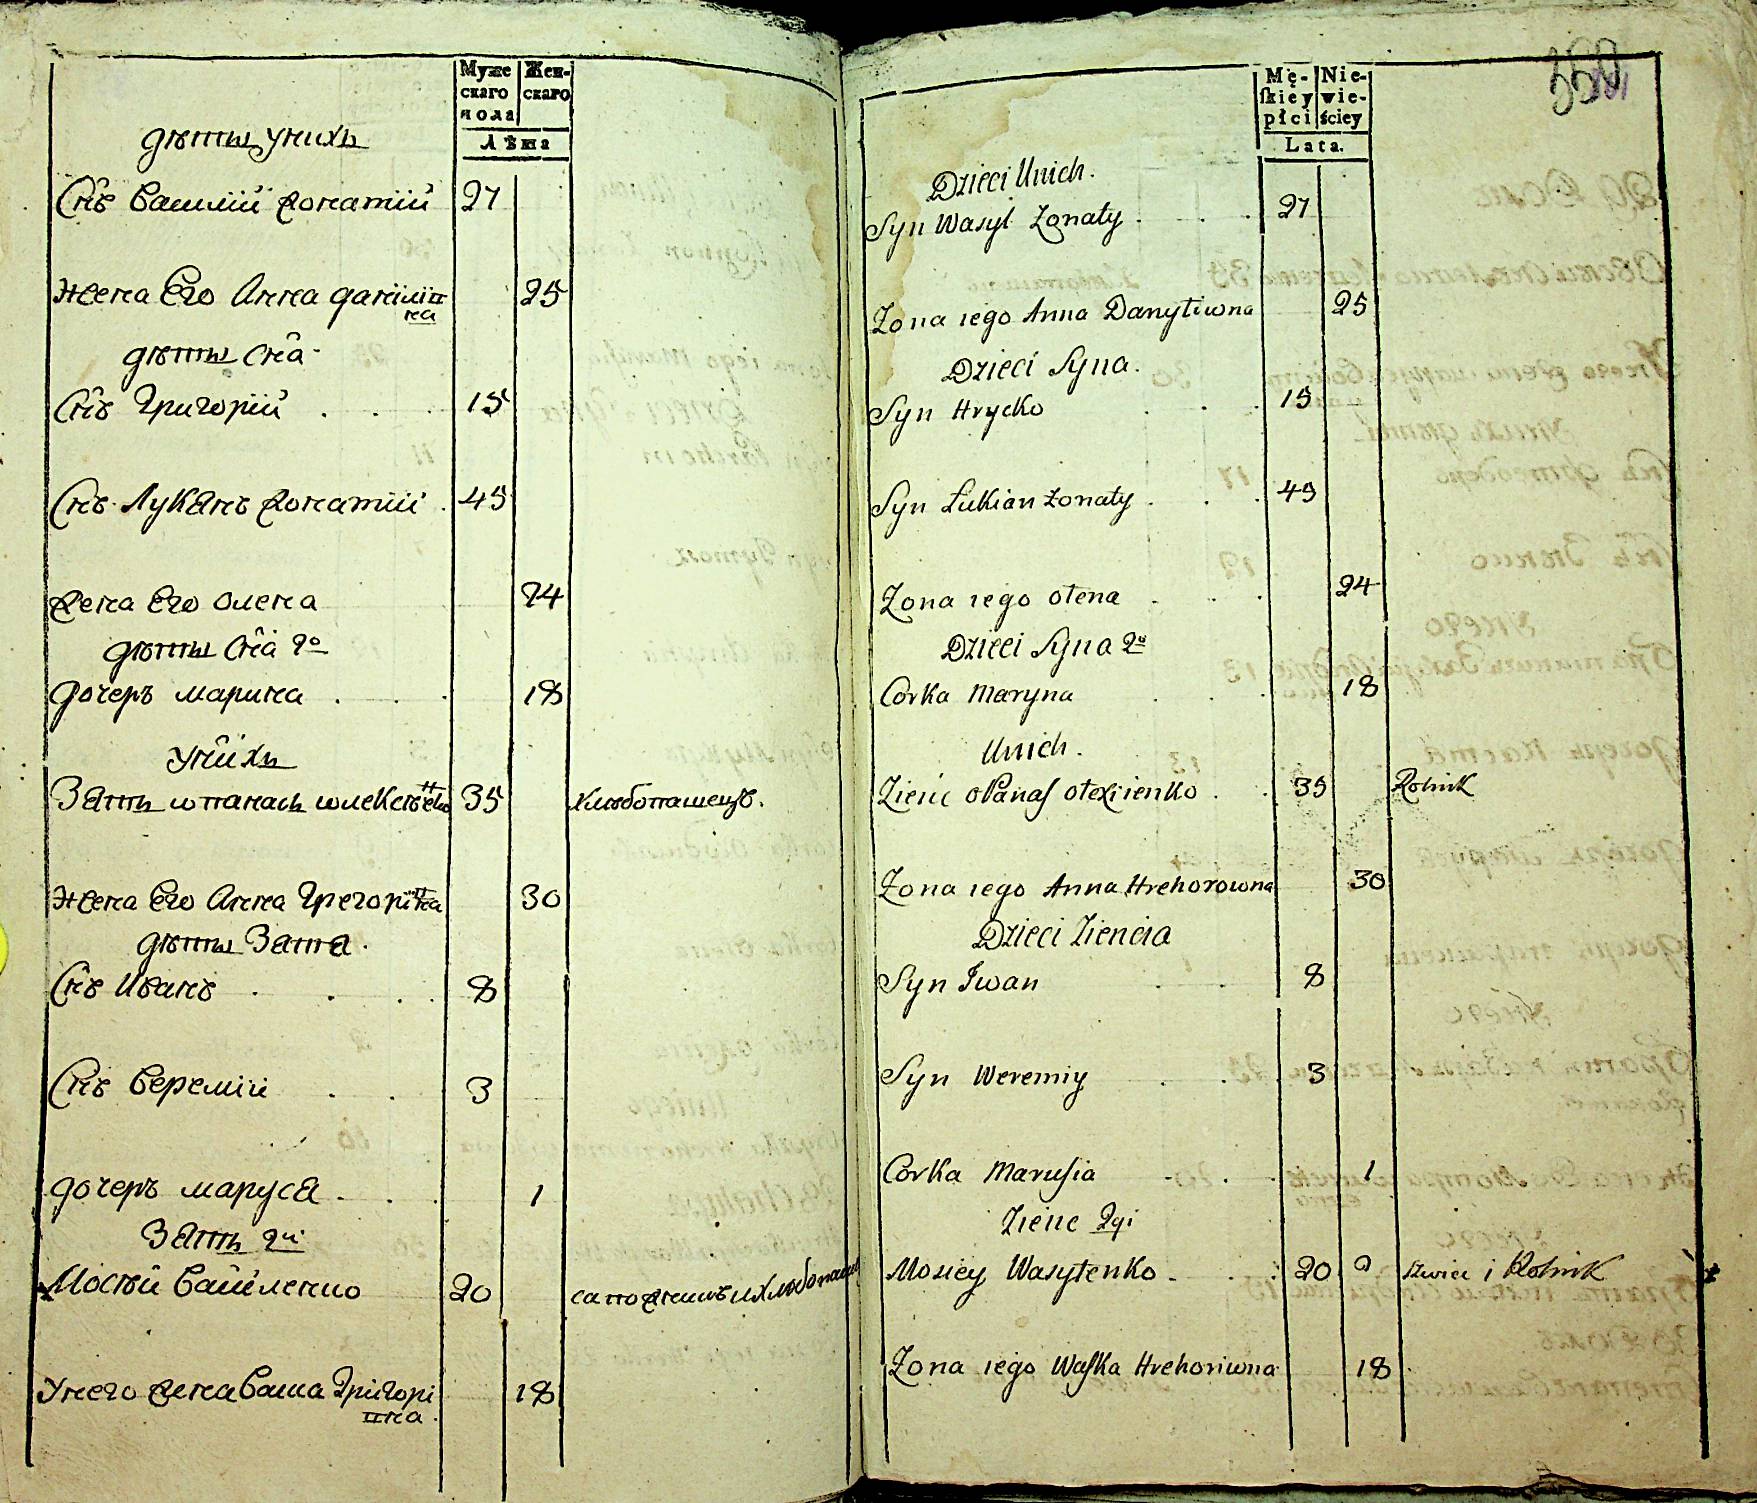 Муже
скаго
пола
Жен-
скаго
Лѣта
дѣты унихъ
Снъ василій жонатий 27
жена Его Анна данилів
на 25
дѣты сна
Снъ Григорій 15
Снъ Лукянъ жонатий 45
жена Его олена 24
дѣты сна 2о
дочеръ марина 18
унихъ
Затъ опанасъ олексѣенко 35 хлѣбопашецъ.
жена Его Анна Григорівна 30
дѣты Затя.
Снъ Иванъ 8
Снъ веремій 3
дочеръ маруся 1
Затъ 2й
Мосѣй василенко 20 сапожникъ и хлѣбопашец
Унего жена васка Григорі
вна 18
Mę-
skiey
płci
Nie-
wie-
ściey
Lata.
Dzieci Unich.
Syn Wasyl Żonaty 27
Żona iego Anna Danyliwna 25
Dzieci Syna.
Syn Hrycko 15
Syn Łukian żonaty 45
Żona iego ołena 24
Dzieci Syna 2o
Corka Maryna 18
Unich.
Zienc oPanas ołexiienko 35 Rolnik
Żona iego Anna Hrehorowna 30
Dzieci Ziencia
Syn Iwan 8
Syn Weremiy 3
Corka Marusia 1
Zienc 2gi
Mosiey Wasylenko 20 szwiec i Rolnik
Żona iego Waska Hrehoriwna 18